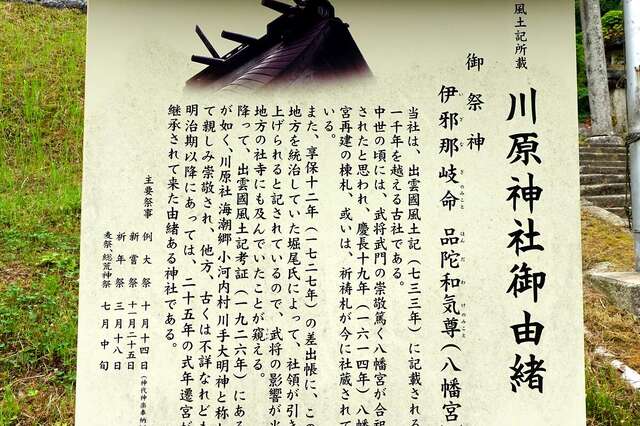 風土記所載
川原神社御由緒
御祭神
伊邪那岐命 品陀和気尊(八幡宮
いざなぎのみこと ほんだわけのみこと
当社は、出雲國風土記(七三三年)に記載される
一千年を越える古社である。
中世の頃には、武将武門の崇敬篤く八幡宮が合祀
されたと思われ、慶長十九年(一六一四年)八幡
宮再建の棟札、或いは、祈祷札が今に社蔵されて
いる。
また、享保十二年(一七二七年)の差出帳に、この
地方を統治していた堀尾氏によって、社領が引き
上げられると記されているので、武将の影響が当
地方の社寺にも及んでいたことが窺える。
降って、出雲國風土記考証(一九二六年)にある
が如く、川原社 海潮郷 小河内村 川手大明神と称し
て親しみ崇敬され、他方、古くは不詳なれども
明治期以降にあっては、二十五年の式年遷宮が
継承されて来た由緒ある神社である。
主要祭事 例大祭 十月十四日(神代神楽奉納
新嘗祭 十一月二十五日
祈年祭 三月十八日
麦祭、総荒神祭 七月中旬